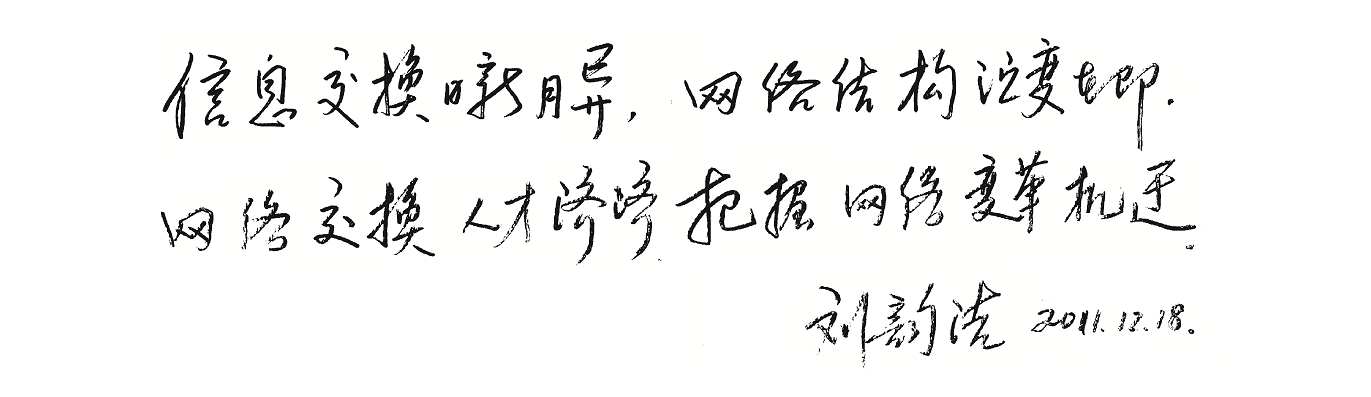 信息交换日新月异，网络结构变在即.
网络交换人才济济 把握网络变革机遇.
刘韵洁 2011.12.18.